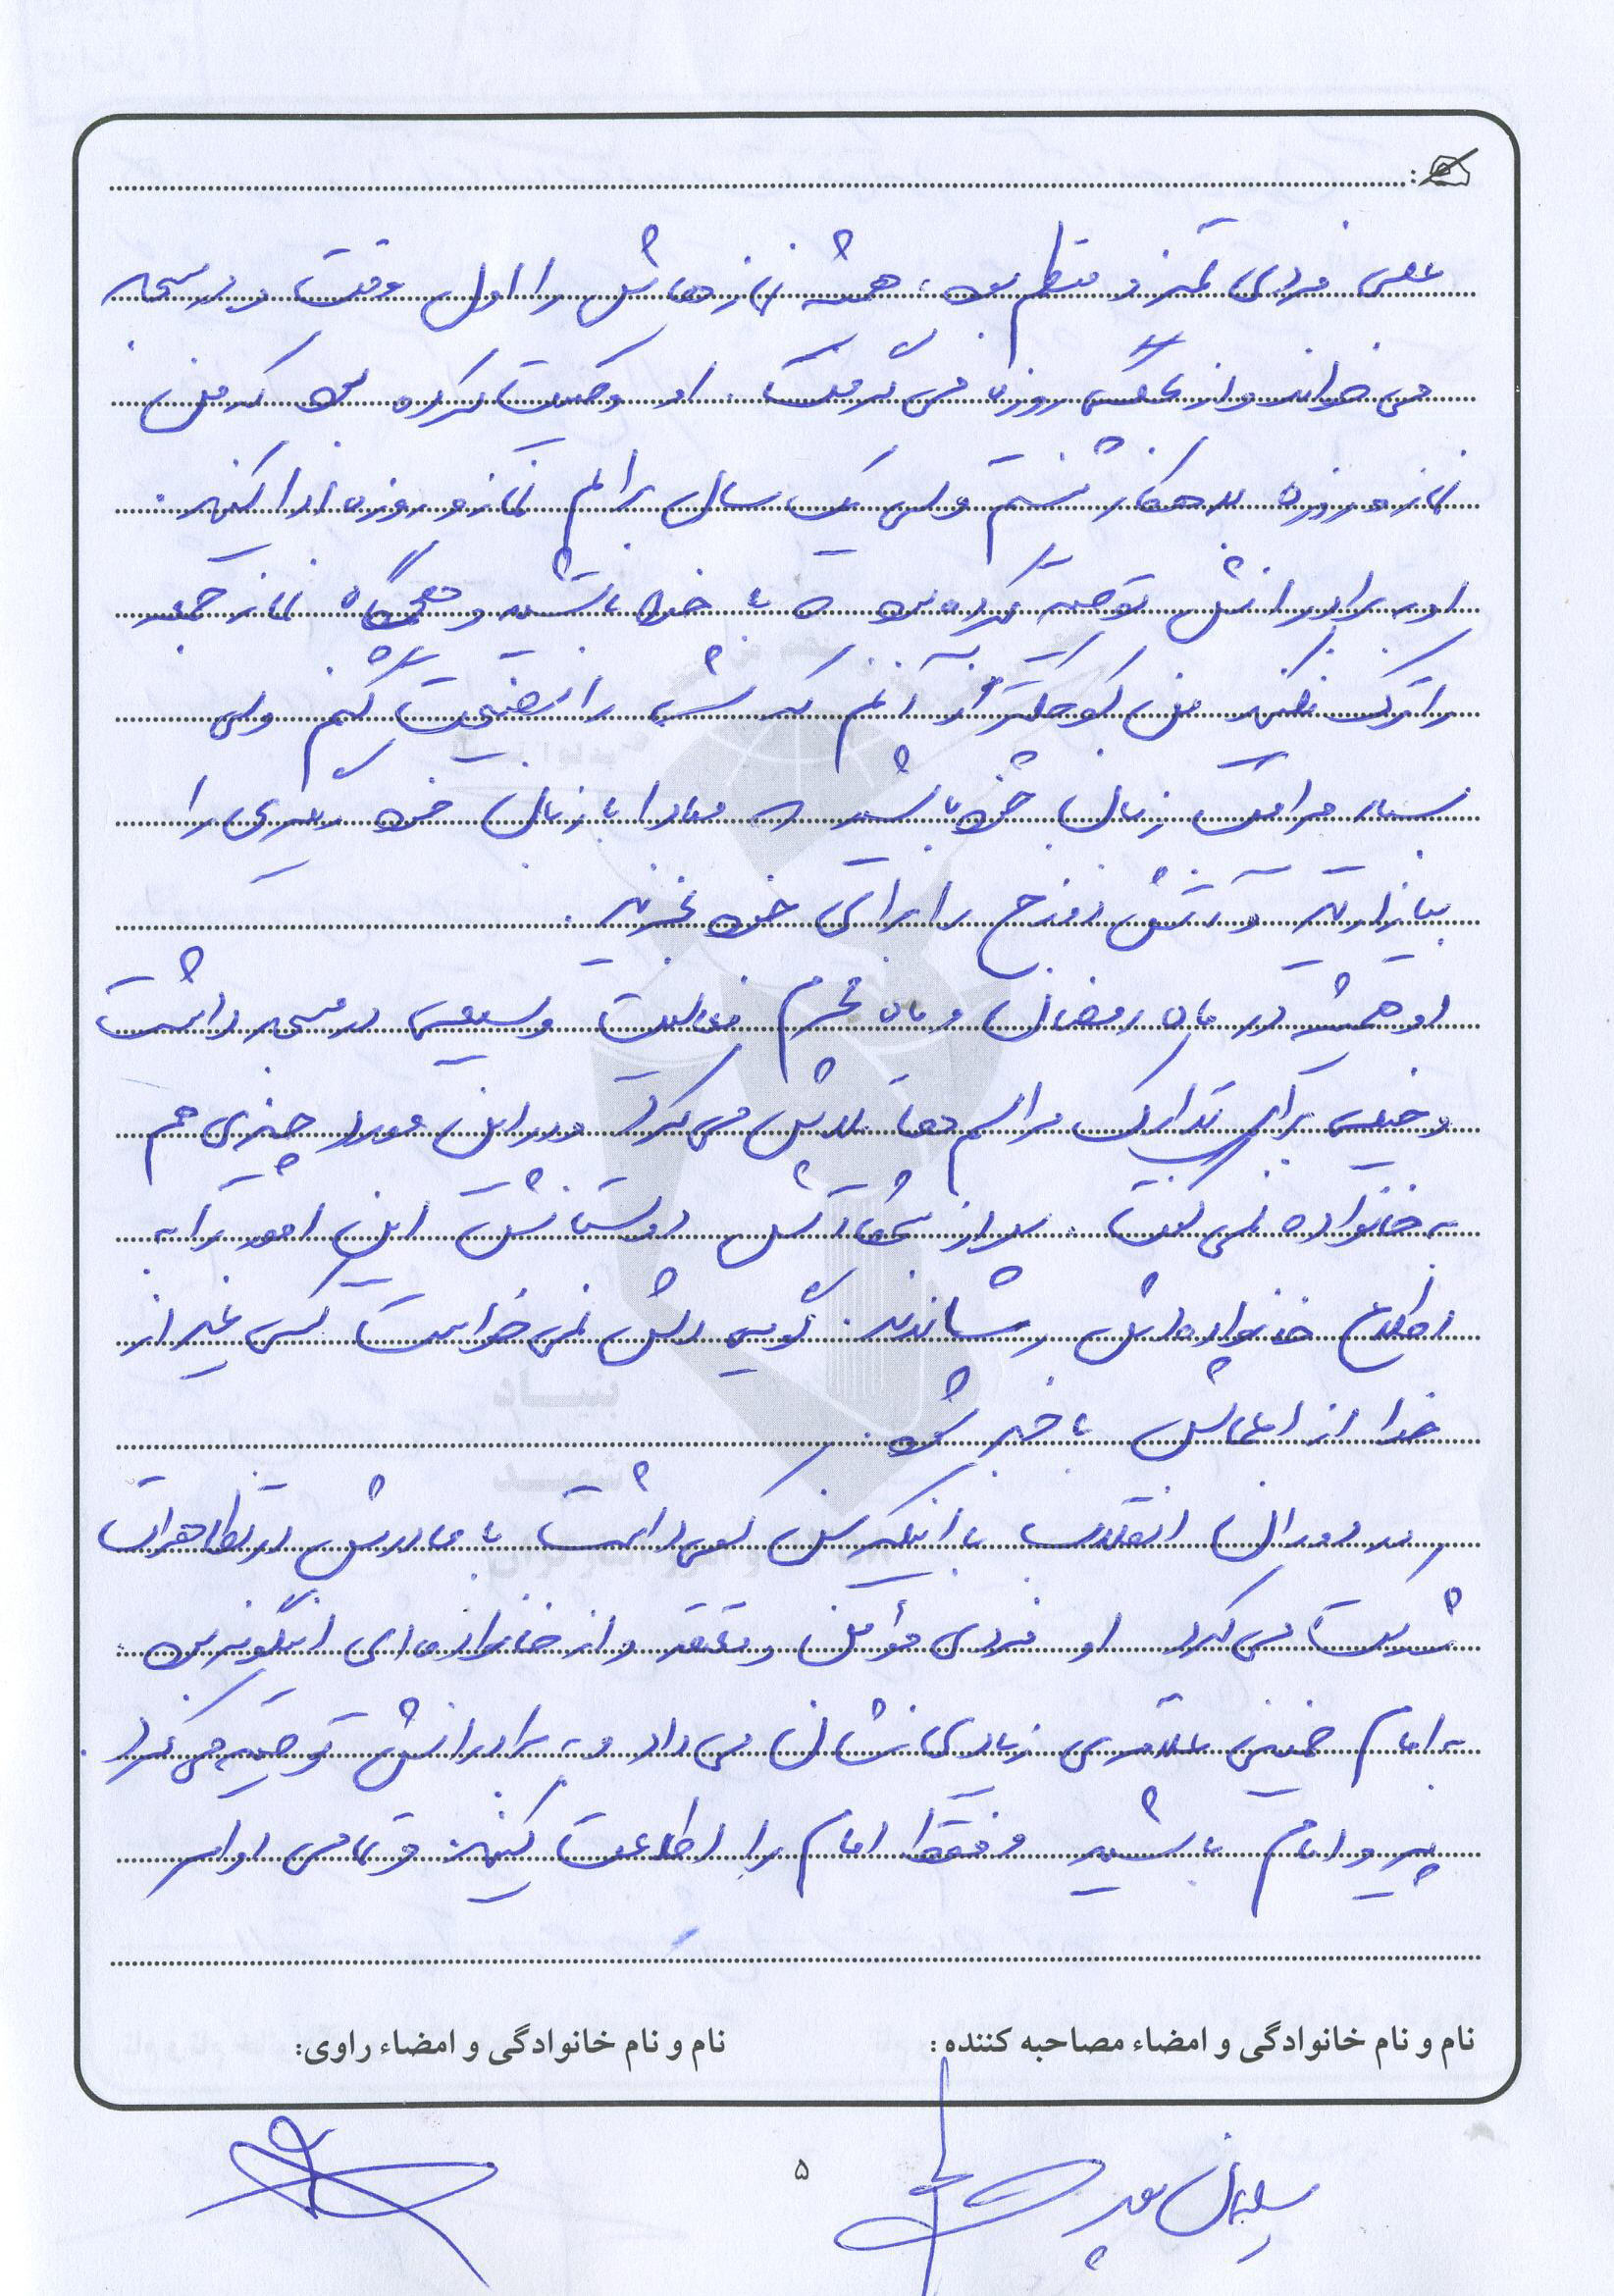 علی فردی تمیز و منظم بود، همیشه نمازهایش را اول وقت و در مسجد
می خواند و از بچگی روزه می گرفت. او وصیت کرده بود که من
نماز و روزه بدهکار نیستم ولی یک سال برایم نماز و روزه ادا کنید.
او به برادرانش توصیه کرده بود که با خدا باشید و هیچگاه نماز جمعه
را ترک نکنید من کوچکتر از آنم که شما را نصیحت کنم ولی
بسیار مراقب زبان خود باشید که مبادا با زبان خود دیگری را
بیازارید و آتش دوزخ را برای خود نخرید.
او همیشه در ماه رمضان و ماه محرم فعالیت وسیعی در مسجد داشت
و خیلی برای تدارک مراسم دعا تلاش می کرد و در این مورد چیزی هم
به خانواده نمی گفت. بعد از شهادتش دوستانش این امور را به
اطلاع خانواده اش رساندند. گویی دلش نمی خواست کسی غیر از
خدا از اعمالش با خبر شود.
در دوران انقلاب با اینکه سن کمی داشت با مادرش در تظاهرات
شرکت می کرد او فردی مؤمن و معتقد و از خانواده ای اینگونه بود.
به امام خمینی علاقه ی زیادی نشان می داد و به برادرانش توصیه می کرد
پیرو امام باشید و فقط امام را اطاعت کنید و تمامی اوامر
نام و نام خانوادگی و امضاء مصاحبه کننده: نام و نام خانوادگی و امضاء راوی:
سلیمان پور
۵
بنیاد
شهید
و امور ایثارگران